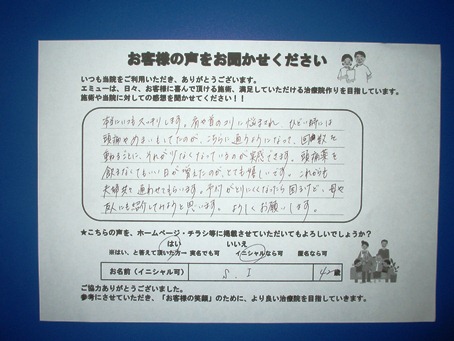 お客様の声をお聞かせください
いつも当院をご利用いただき、ありがとうございます。
エミューは、日々、お客様に喜んで頂ける施術、満足していただける治療院作りを目指しています。
施術や当院に対しての感想を聞かせてください!!
本当にいつもスッキリします。肩や首のコリに悩まされ、ひどい時には
頭痛やめまいもしてたのが、こちらに通うようになって、回数を
重ねるごとに、それが少なくなっているのが実感できます。頭痛薬を
飲まなくてもいい日が増えたのが、とても嬉しいです。これからも
夫婦共々通わせてもらいます。予約がとりにくくなったら困るけど、母や
友人にも紹介してみようと思います。よろしくお願いします。
★こちらの声を、ホームページ・チラシ等に掲載させていただいてもよろしいでしょうか?
はい いいえ
※はい、と答えて頂いた方→ 実名でも可 イニシャルなら可 匿名なら可
お名前(イニシャル可) S.I 42歳
ご協力ありがとうございました。
参考にさせていただき、「お客様の笑顔」のために、より良い治療院を目指していきます。